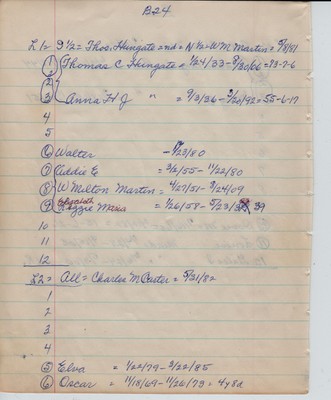 B24
L1 = S 1/2 = Thos. Hungate = nd = N 1/2 = W M Marten = 9/8/81
1 Thomas C Hungate = 1/24/33 - 8/30/06 = 73-7-6
2
3 Anna H J " = 9/3/36 - 3/20/92 = 55-6-17
4
5
6 Walter - 8/23/80
7 Addie E = 3/2/55 - 11/22/80
8 W Milton Marten = 4/27/51 - 3/24/09
9 Elizabeth Lizzie Maria = 1/26/58 - 5/23/39
10
11
12
L2 = All = Charles M Carter = 5/31/82
1
2
3
4
5 Elva = 1/22/79 - 3/22/85
6 Oscar = 11/18/69 - 11/26/73 = 4y8d